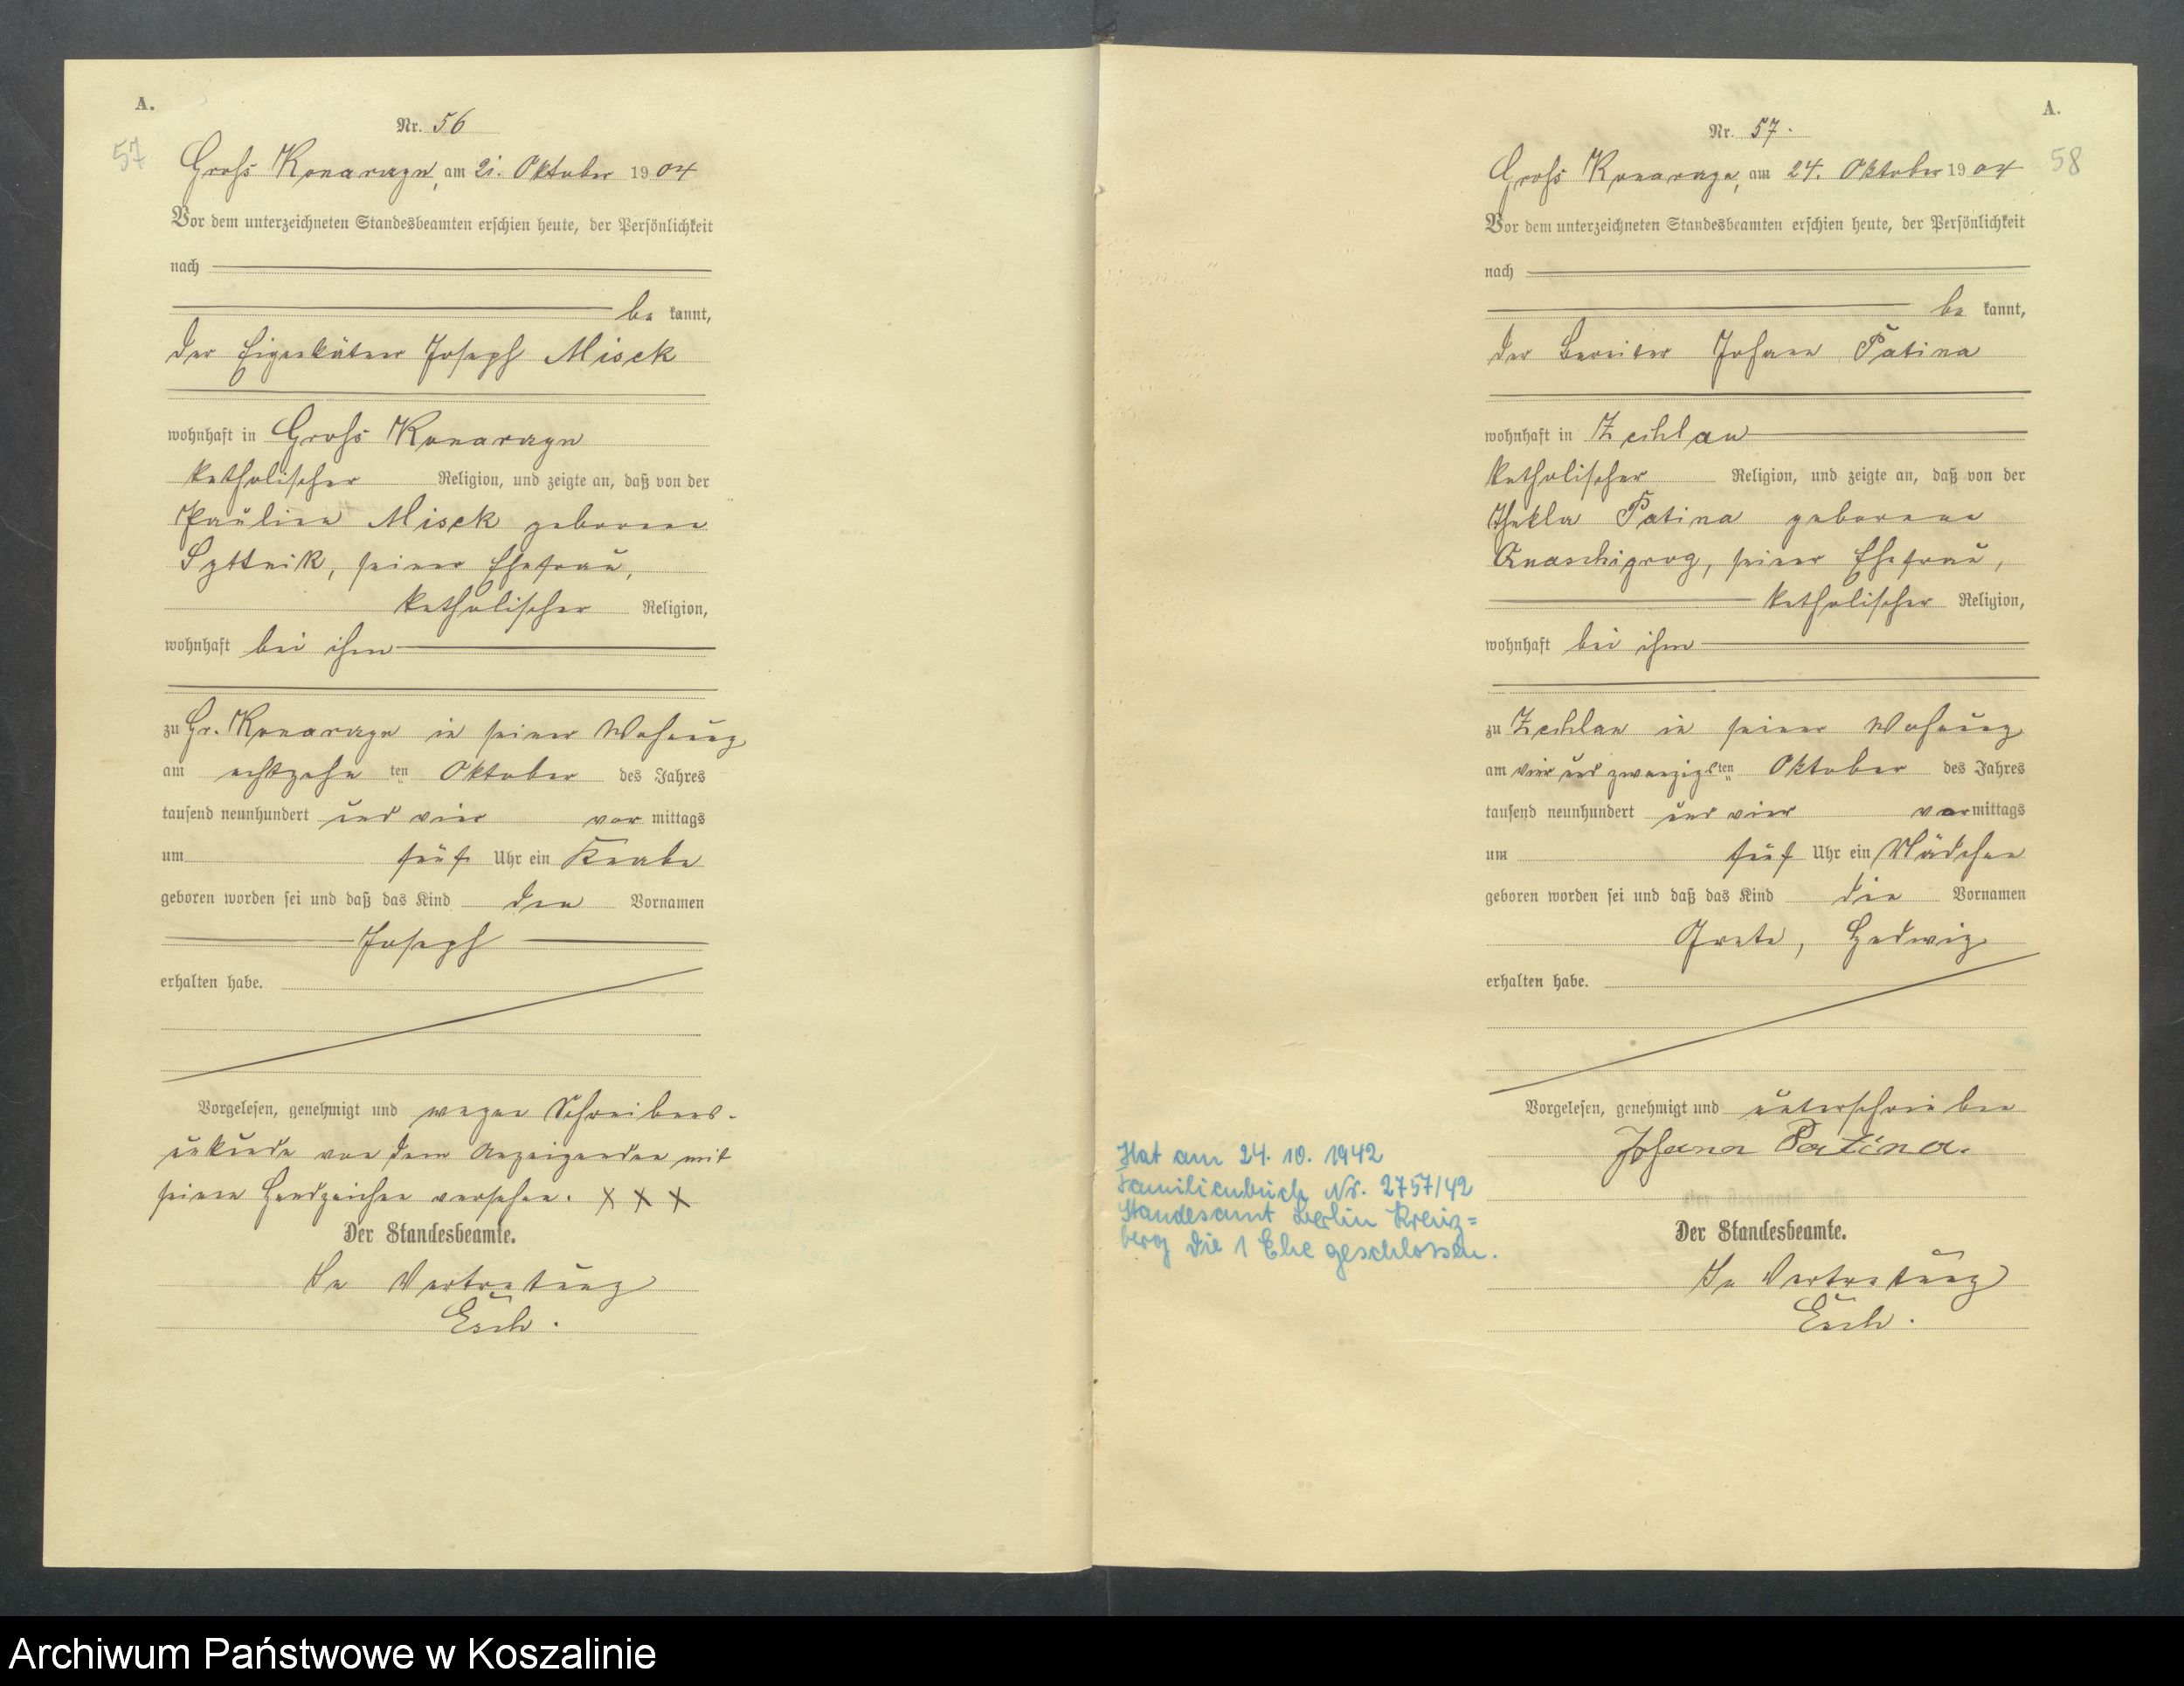 A.
57
Nr. 56
Groß Konarzyn, am 21. Oktober 1904
Vor dem unterzeichneten Standesbeamten erschien heute, der Persönlichkeit
nach
be kannt,
der Eigenkätner Joseph Misck
wohnhaft in Groß Konarzyn
katholischer Religion, und zeigte an, daß von der
Pauline Misck geborene
seiner Ehefrau,
katholischer Religion,
wohnhaft bei ihm
zu Gr. Konarzyn in seiner Wohnung
am achtzehn ten Oktober des Jahres
tausend neunhundert und vier vor mittags
um fünf Uhr ein Knabe
geboren worden sei und daß das Kind den Vornamen
Joseph
erhalten habe.
Vorgelesen, genehmigt und wegen Schreibens-
unkunde von dem Anzeigenden mit
seinem Handzeichen versehen. X X X
Der Standesbeamte.
In Vertretung
Esch.
A.
58
Nr. 57.
Groß Konarzyn, am 24. Oktober 1904
Vor dem unterzeichneten Standesbeamten erschien heute, der Persönlichkeit
nach
be kannt,
der Johann Patina
wohnhaft in Zechlau
katholischer Religion, und zeigte an, daß von der
Thekla Patina geborene
seiner Ehefrau,
katholischer Religion,
wohnhaft bei ihm
zu Zechlau in seiner Wohnung
am vier und zwanzigsten Oktober des Jahres
tausend neunhundert und vier vor mittags
um fünf Uhr ein Mädchen
geboren worden sei und daß das Kind die Vornamen
Grete, Hedwig
erhalten habe.
Vorgelesen, genehmigt und unterschrieben
Johann Patina.
Der Standesbeamte.
In Vertretung
Esch.
Hat am 24. 10. 1942
Familienbuch Nr. 2757/42
Standesamt Berlin Kreuz=
berg die 1 Ehe geschlossen.
Archiwum Państwowe w Koszalinie